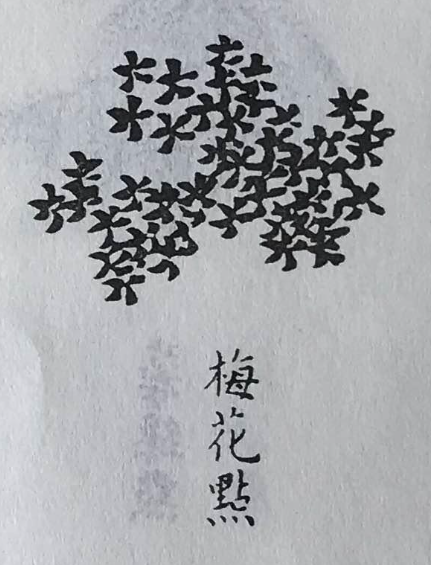 梅花點